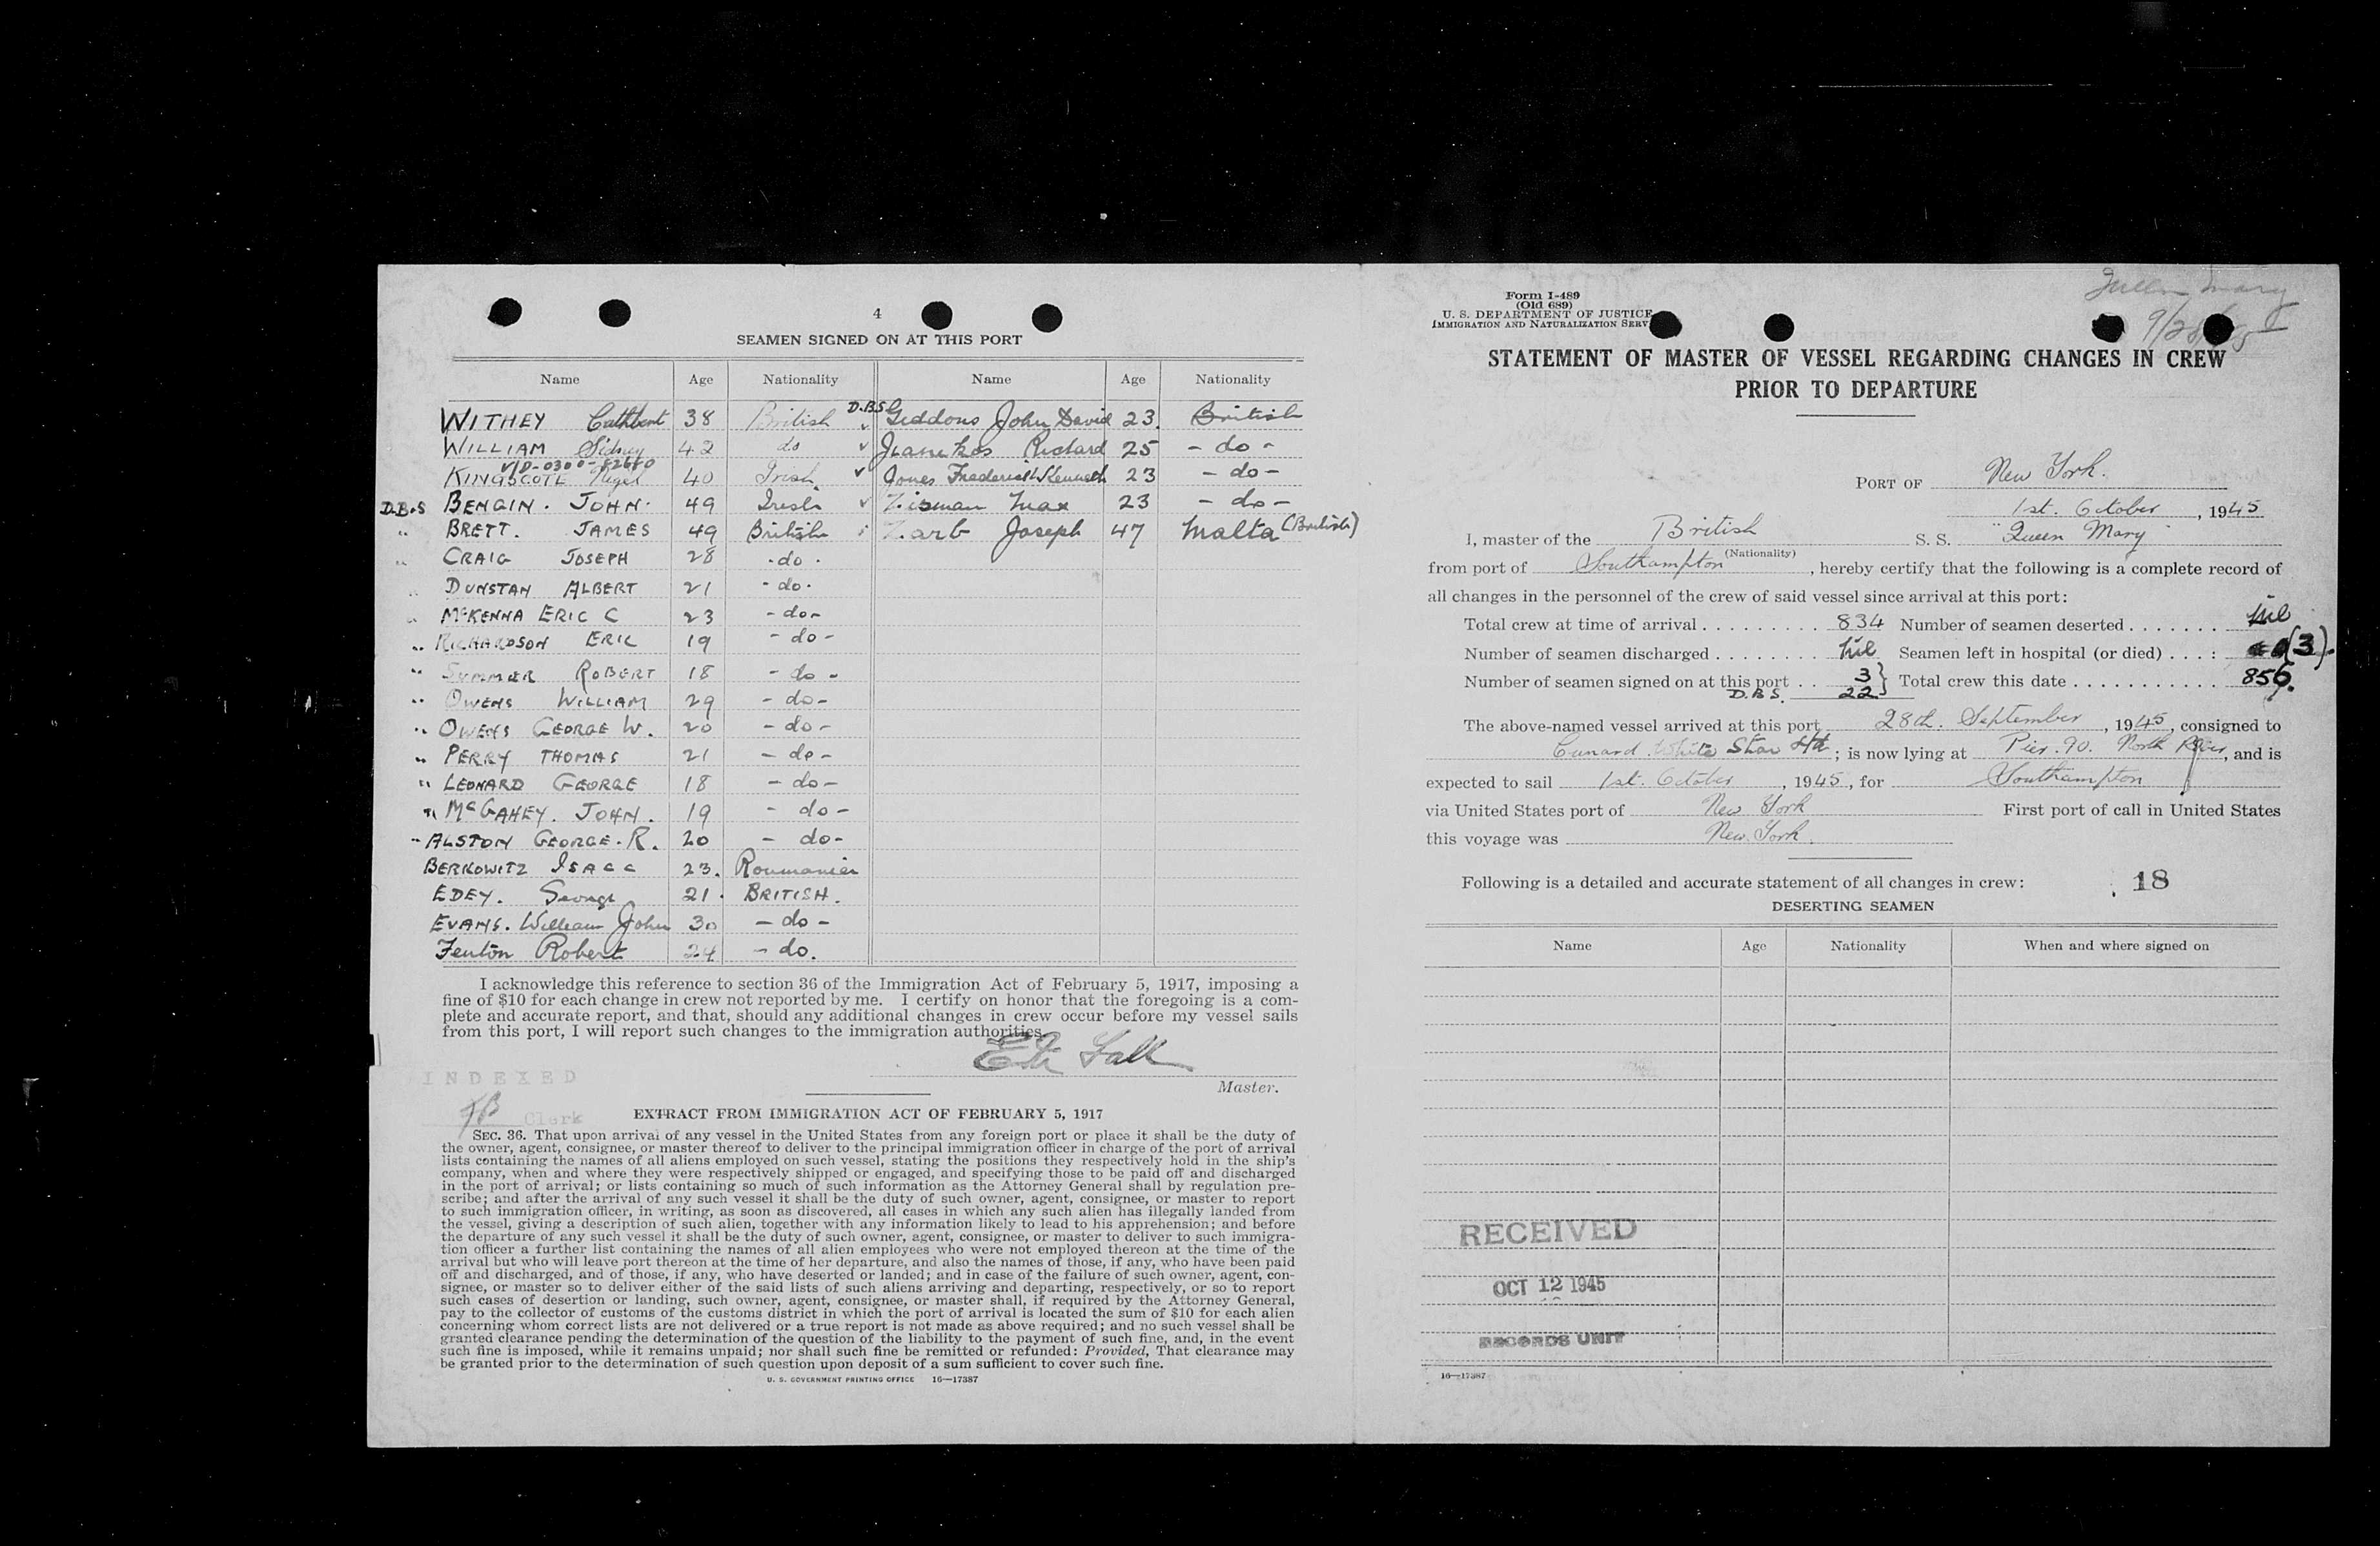 4
SEAMEN SIGNED ON AT THIS PORT
Name Age Nationality Name Age Nationality
WITHEY Cuthbert 38 British D.B.S Geddons John David 23. British
WILLIAM Sidney 42 do Richard 25 - do -
V/D-0300-
KINGSCOTE Nigel 40 Irish Jones Frederick Kenneth 23 - do -
D.B.S BENGIN. JOHN. 49 Irish Zisman Max 23 - do -
" BRETT. JAMES 49 British Zarb Joseph 47 Malta (British)
" CRAIG JOSEPH 28 - do -
" DUNSTAN ALBERT 21 - do -
" McKENNA ERIC C 23 - do -
" RICHARDSON ERIC 19 - do -
" SUMMER ROBERT 18 - do -
" OWENS WILLIAM 29 - do -
" OWENS GEORGE W. 20 - do -
" PERRY THOMAS 21 - do -
" LEONARD GEORGE 18 - do -
" McGAHEY. JOHN. 19 - do -
" ALSTON GEORGE. R. 20 - do -
BERKOWITZ ISACC 23. Roumanian
EDEY. George 21. BRITISH.
EVANS. William John 30 - do -
Fenton Robert 24 - do.
I acknowledge this reference to section 36 of the Immigration Act of February 5, 1917, imposing a
fine of $10 for each change in crew not reported by me. I certify on honor that the foregoing is a com-
plete and accurate report, and that, should any additional changes in crew occur before my vessel sails
from this port, I will report such changes to the immigration authorities.
Master.
INDEXED
Clerk
EXTRACT FROM IMMIGRATION ACT OF FEBRUARY 5, 1917
SEC. 36. That upon arrival of any vessel in the United States from any foreign port or place it shall be the duty of
the owner, agent, consignee, or master thereof to deliver to the principal immigration officer in charge of the port of arrival
lists containing the names of all aliens employed on such vessel, stating the positions they respectively hold in the ship's
company, when and where they were respectively shipped or engaged, and specifying those to be paid off and discharged
in the port of arrival; or lists containing so much of such information as the Attorney General shall by regulation pre-
scribe; and after the arrival of any such vessel it shall be the duty of such owner, agent, consignee, or master to report
to such immigration officer, in writing, as soon as discovered, all cases in which any such alien has illegally landed from
the vessel, giving a description of such alien, together with any information likely to lead to his apprehension; and before
the departure of any such vessel it shall be the duty of such owner, agent, consignee, or master to deliver to such immigra-
tion officer a further list containing the names of all alien employees who were not employed thereon at the time of the
arrival but who will leave port thereon at the time of her departure, and also the names of those, if any, who have been paid
off and discharged, and of those, if any, who have deserted or landed; and in case of the failure of such owner, agent, con-
signee, or master so to deliver either of the said lists of such aliens arriving and departing, respectively, or so to report
such cases of desertion or landing, such owner, agent, consignee, or master shall, if required by the Attorney General,
pay to the collector of customs of the customs district in which the port of arrival is located the sum of $10 for each alien
concerning whom correct lists are not delivered or a true report is not made as above required; and no such vessel shall be
granted clearance pending the determination of the question of the liability to the payment of such fine, and, in the event
such fine is imposed, while it remains unpaid; nor shall such fine be remitted or refunded: Provided, That clearance may
be granted prior to the determination of such question upon deposit of a sum sufficient to cover such fine.
U. S. GOVERNMENT PRINTING OFFICE 16—17387
Form I-489
(Old 689)
U. S. DEPARTMENT OF JUSTICE
IMMIGRATION AND NATURALIZATION SERV
Queen Mary
9/28/45
STATEMENT OF MASTER OF VESSEL REGARDING CHANGES IN CREW
PRIOR TO DEPARTURE
PORT OF New York.
1st. October, 1945
I, master of the British S. S. "Queen Mary"
(Nationality)
from port of Southampton, hereby certify that the following is a complete record of
all changes in the personnel of the crew of said vessel since arrival at this port:
Total crew at time of arrival 834 Number of seamen deserted Nil
Number of seamen discharged Nil Seamen left in hospital (or died) (3)
Number of seamen signed on at this port 3 Total crew this date 856.
D.B.S. 22
The above-named vessel arrived at this port 28th. September, 1945, consigned to
Cunard White Star Ltd; is now lying at Pier. 90. North River, and is
expected to sail 1st. October, 1945, for Southampton
via United States port of New York First port of call in United States
this voyage was New York.
Following is a detailed and accurate statement of all changes in crew: 18
DESERTING SEAMEN
Name Age Nationality When and where signed on
RECEIVED
OCT 12 1945
RECORDS UNIT
16—17387